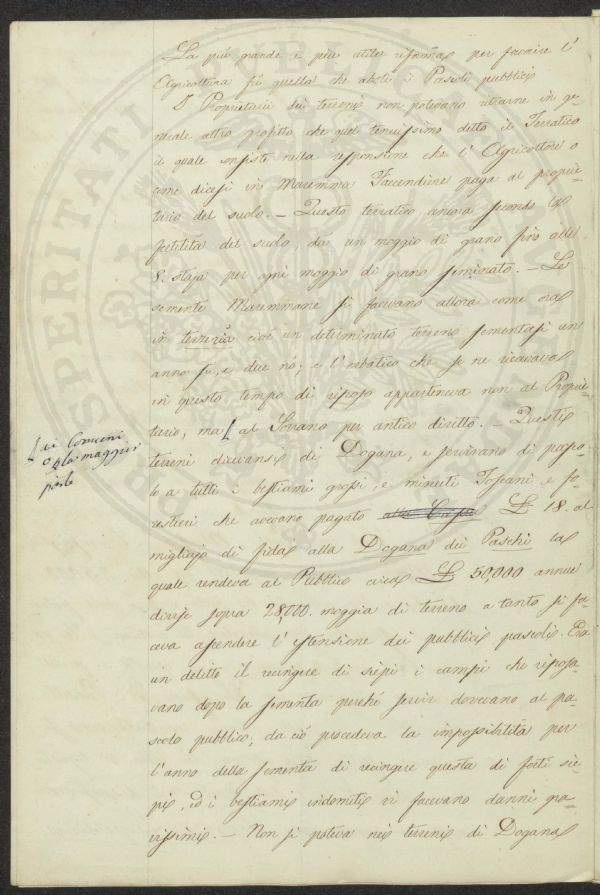 La più grande e più utile riforma per favorire l'
Agricoltura fù quella che abolì i Pascoli pubblici
I Proprietarii dei terreni non potevano ritrarne in ge-
nerale altro profitto che quel tenuissimo detto il Terratico
il quale consiste nella responsione che l'Agricoltore o
come dicesi in Maremma Faccendiere paga al proprie-
tario del suolo. – Questo terratico ancora secondo la
fertilità del suolo, da un moggio di grano fino alle
8. staja per ogni moggio di grano seminato. – Le
semente Maremmane si facevano allora come ora
in terzeria cioè un determinato terreno sementasi un
anno sì, e due nò; e l'erbatico che se ne ricavava
in questo tempo di riposo apparteneva non al Proprie-
tario, ma al Sovrano per antico diretto. – Questi
ai Comuni
o alla maggior
parte
terreni dicevansi di Dogana, e servivano di pasco-
lo a tutti i bestiami grossi, e minuti Toscani e fo-
restieri che avevano pagato £ 18. al
migliajo di fida alla Dogana dei Paschi la
quale rendeva al Pubblico circa £ 50,000 annue
divise sopra 28,000. moggia di terreno a tanto si fa-
ceva ascendere l'estensione dei pubblici pascoli. Era
un delitto il recingere di siepi i campi che riposa-
vano dopo la sementa perché servir dovevano al pa-
scolo pubblico, da ciò procedeva la impossibilità per
l'anno della sementa di recingere questa di forti sie-
pi, ed i bestiami indomiti vi facevano danni gra-
vissimi. – Non si poteva nei terreni di Dogana